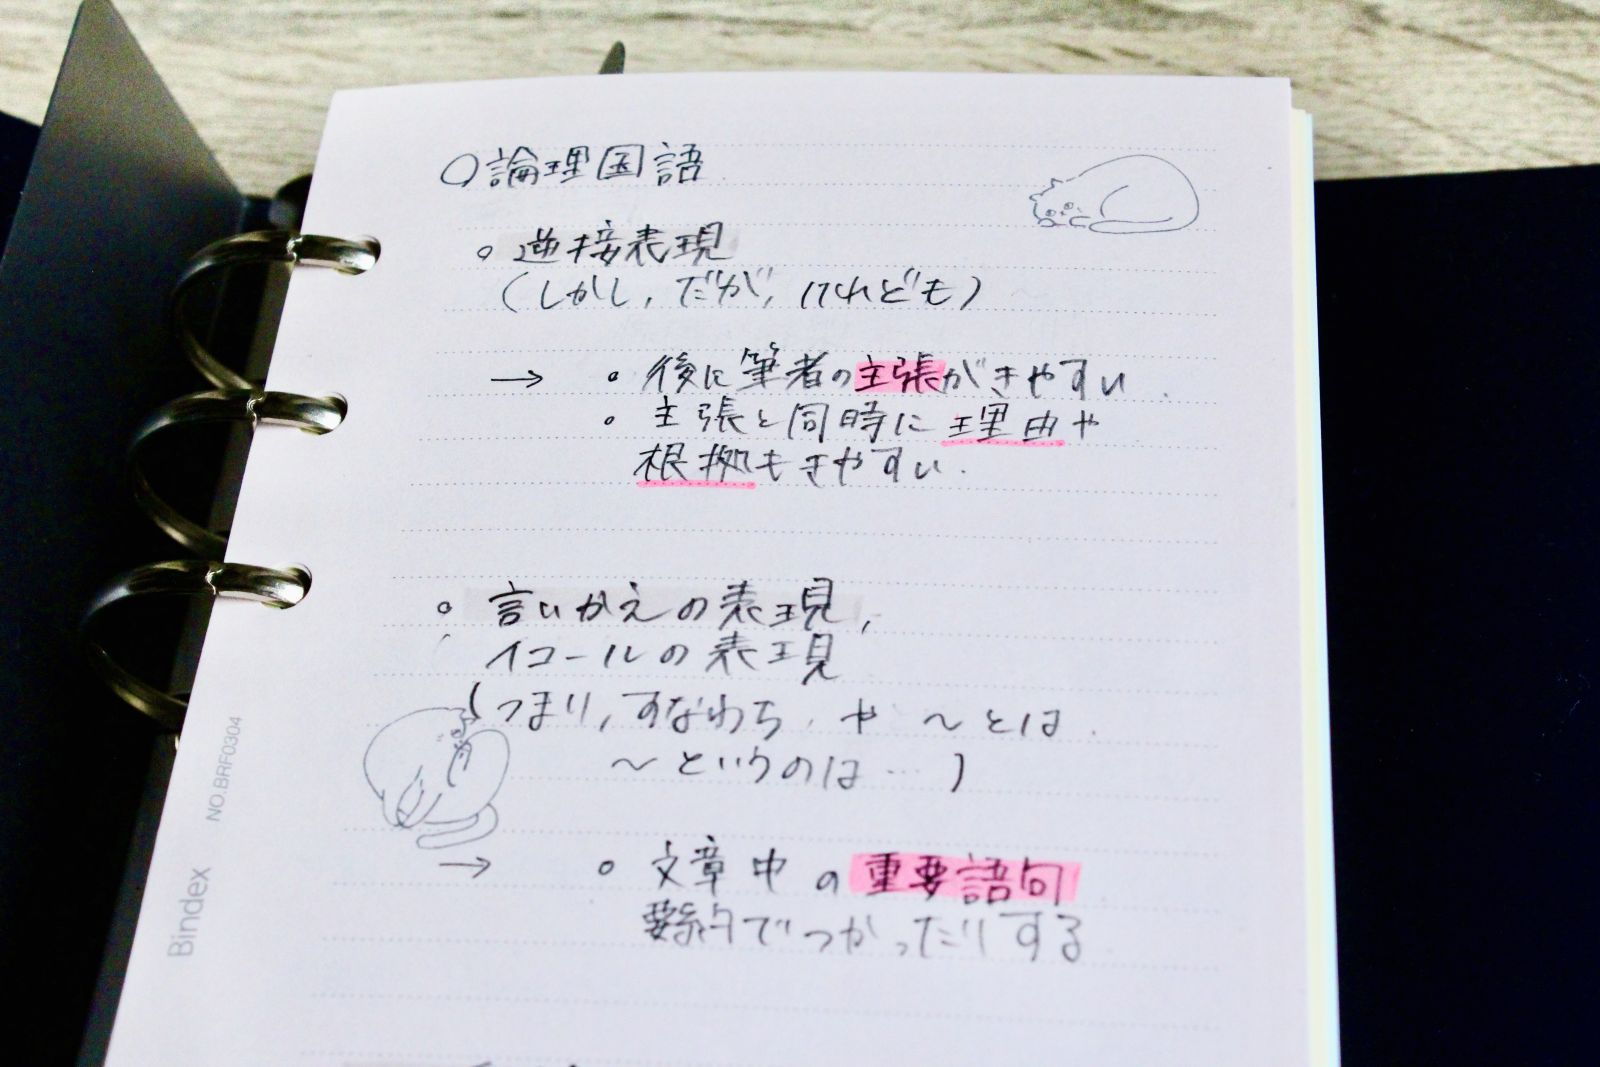 ○論理国語
。逆接表現
(しかし, だが, けれども)
→ 。後に筆者の主張がきやすい.
。主張と同時に理由や
根拠もきやすい.
。言いかえの表現,
イコールの表現
(つまり, すなわち. や 〜とは.
〜というのは…)
→ 。文章中の重要語句
要約でつかったりする
Bindex NO.BRF0304